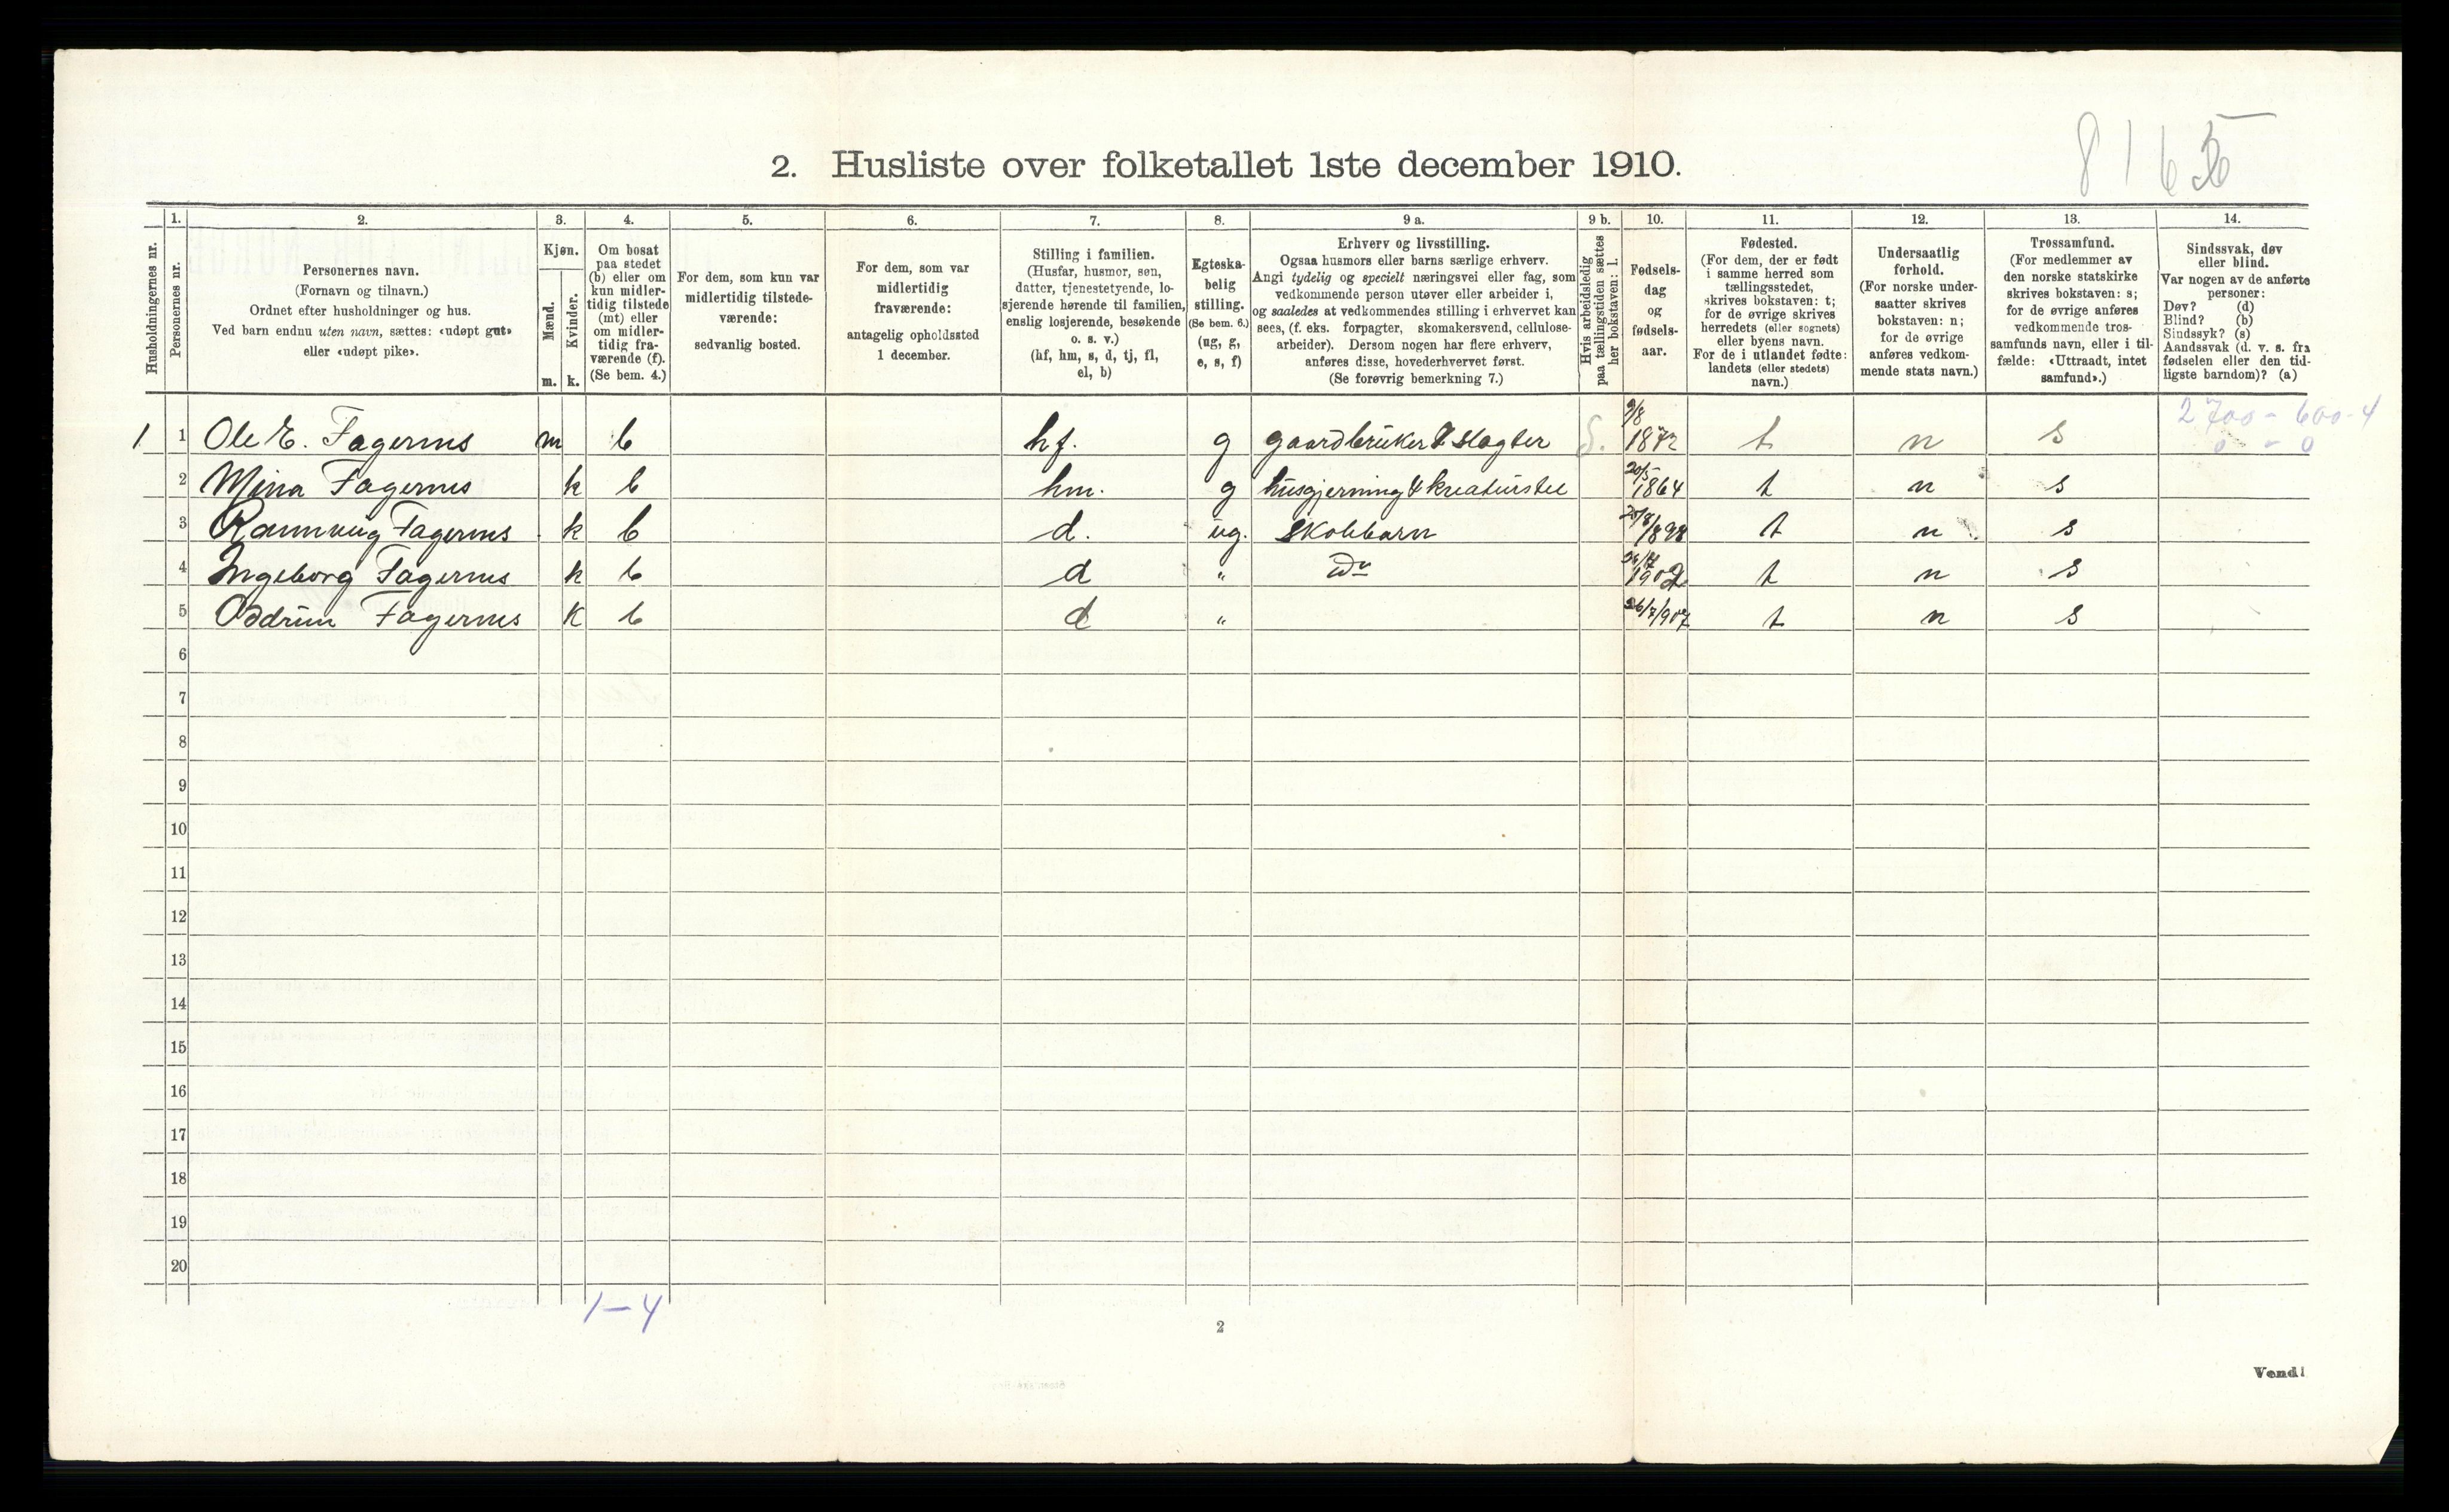 2. Husliste over folketallet 1ste december 1910.
Husholdningernes nr.
1.
Personernes nr.
2.
Personernes navn.
(Fornavn og tilnavn.)
Ordnet efter husholdninger og hus.
Ved barn endnu uten navn, sættes: «udøpt gut»
eller «udøpt pike».
3.
Kjøn.
Mænd.
Kvinder.
m. k.
4.
Om bosat
paa stedet
(b) eller om
kun midler-
tidig tilstede
(mt) eller
om midler-
tidig fra-
værende (f).
(Se bem. 4.)
5.
For dem, som kun var
midlertidig tilstede-
værende:
sedvanlig bosted.
6.
For dem, som var
midlertidig
fraværende:
antagelig opholdssted
1 december.
7.
Stilling i familien.
(Husfar, husmor, søn,
datter, tjenestetyende, lo-
sjerende hørende til familien,
enslig losjerende, besøkende
o. s. v.)
(hf, hm, s, d, tj, fl,
el, b)
8.
Egteska-
belig
stilling.
(Se bem. 6.)
(ug, g,
e, s, f)
9 a.
Erhverv og livsstilling.
Ogsaa husmors eller barns særlige erhverv.
Angi tydelig og specielt næringsvei eller fag, som
vedkommende person utøver eller arbeider i,
og saaledes at vedkommendes stilling i erhvervet kan
sees, (f. eks. forpagter, skomakersvend, cellulose-
arbeider). Dersom nogen har flere erhverv,
anføres disse, hovederhvervet først.
(Se forøvrig bemerkning 7.)
9 b.
Hvis arbeidsledig
paa tællingstiden sættes
her bokstaven: l.
10.
Fødsels-
dag
og
fødsels-
aar.
11.
Fødested.
(For dem, der er født
i samme herred som
tællingsstedet,
skrives bokstaven: t;
for de øvrige skrives
herredets (eller sognets)
eller byens navn.
For de i utlandet fødte:
landets (eller stedets)
navn.)
12.
Undersaatlig
forhold.
(For norske under-
saatter skrives
bokstaven: n;
for de øvrige
anføres vedkom-
mende stats navn.)
13.
Trossamfund.
(For medlemmer av
den norske statskirke
skrives bokstaven: s;
for de øvrige anføres
vedkommende tros-
samfunds navn, eller i til-
fælde: «Uttraadt, intet
samfund».)
14.
Sindssvak, døv
eller blind.
Var nogen av de anførte
personer:
Døv? (d)
Blind? (b)
Sindssyk? (s)
Aandssvak (d. v. s. fra
fødselen eller den tid-
ligste barndom)? (a)
2700 - 600-4
0 - 0
1 1 Ole E. Fagernes m b hf. g gaardbruker & slagter S. 9/8 1872 t n s
2 Mina Fagernes k b hm. g husgjerning & kreaturstel 20/5 1864 t n s
3 Rannveig Fagernes k b d. ug. skolebarn 1898 t n s
4 Ingeborg Fagernes k b d " Do 1902 t n s
5 Oddrun Fagernes k b d " 26/7 1907 t n s
6
7
8
9
10
11
12
13
14
15
16
17
18
19
20
1-4
2
Vend!